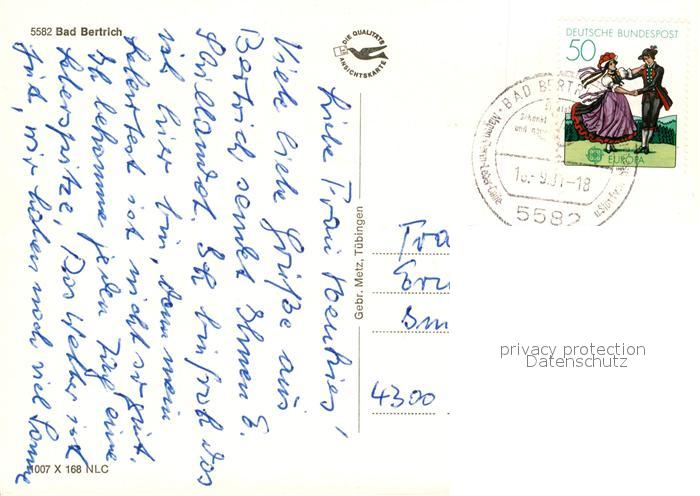 5582 Bad Bertrich
DIE QUALITÄTS
ANSICHTSKARTE
Liebe Frau
Viele liebe Grüße aus
Bertrich sendet Ihnen E.
Ich bin froh das
ich hier bin, denn mein
Lebertest ist nicht so gut.
Ich bekomme jeden Tag eine
Leberspritze. Das Wetter ist
gut, wir haben noch viel Sonne
1007 X 168 NLC
Gebr. Metz, Tübingen
DEUTSCHE BUNDESPOST
50
EUROPA
BAD BERTR
Magen-Darm-Leber-Galle
-9.81-18
5582
Fra
4300
privacy protection
Datenschutz